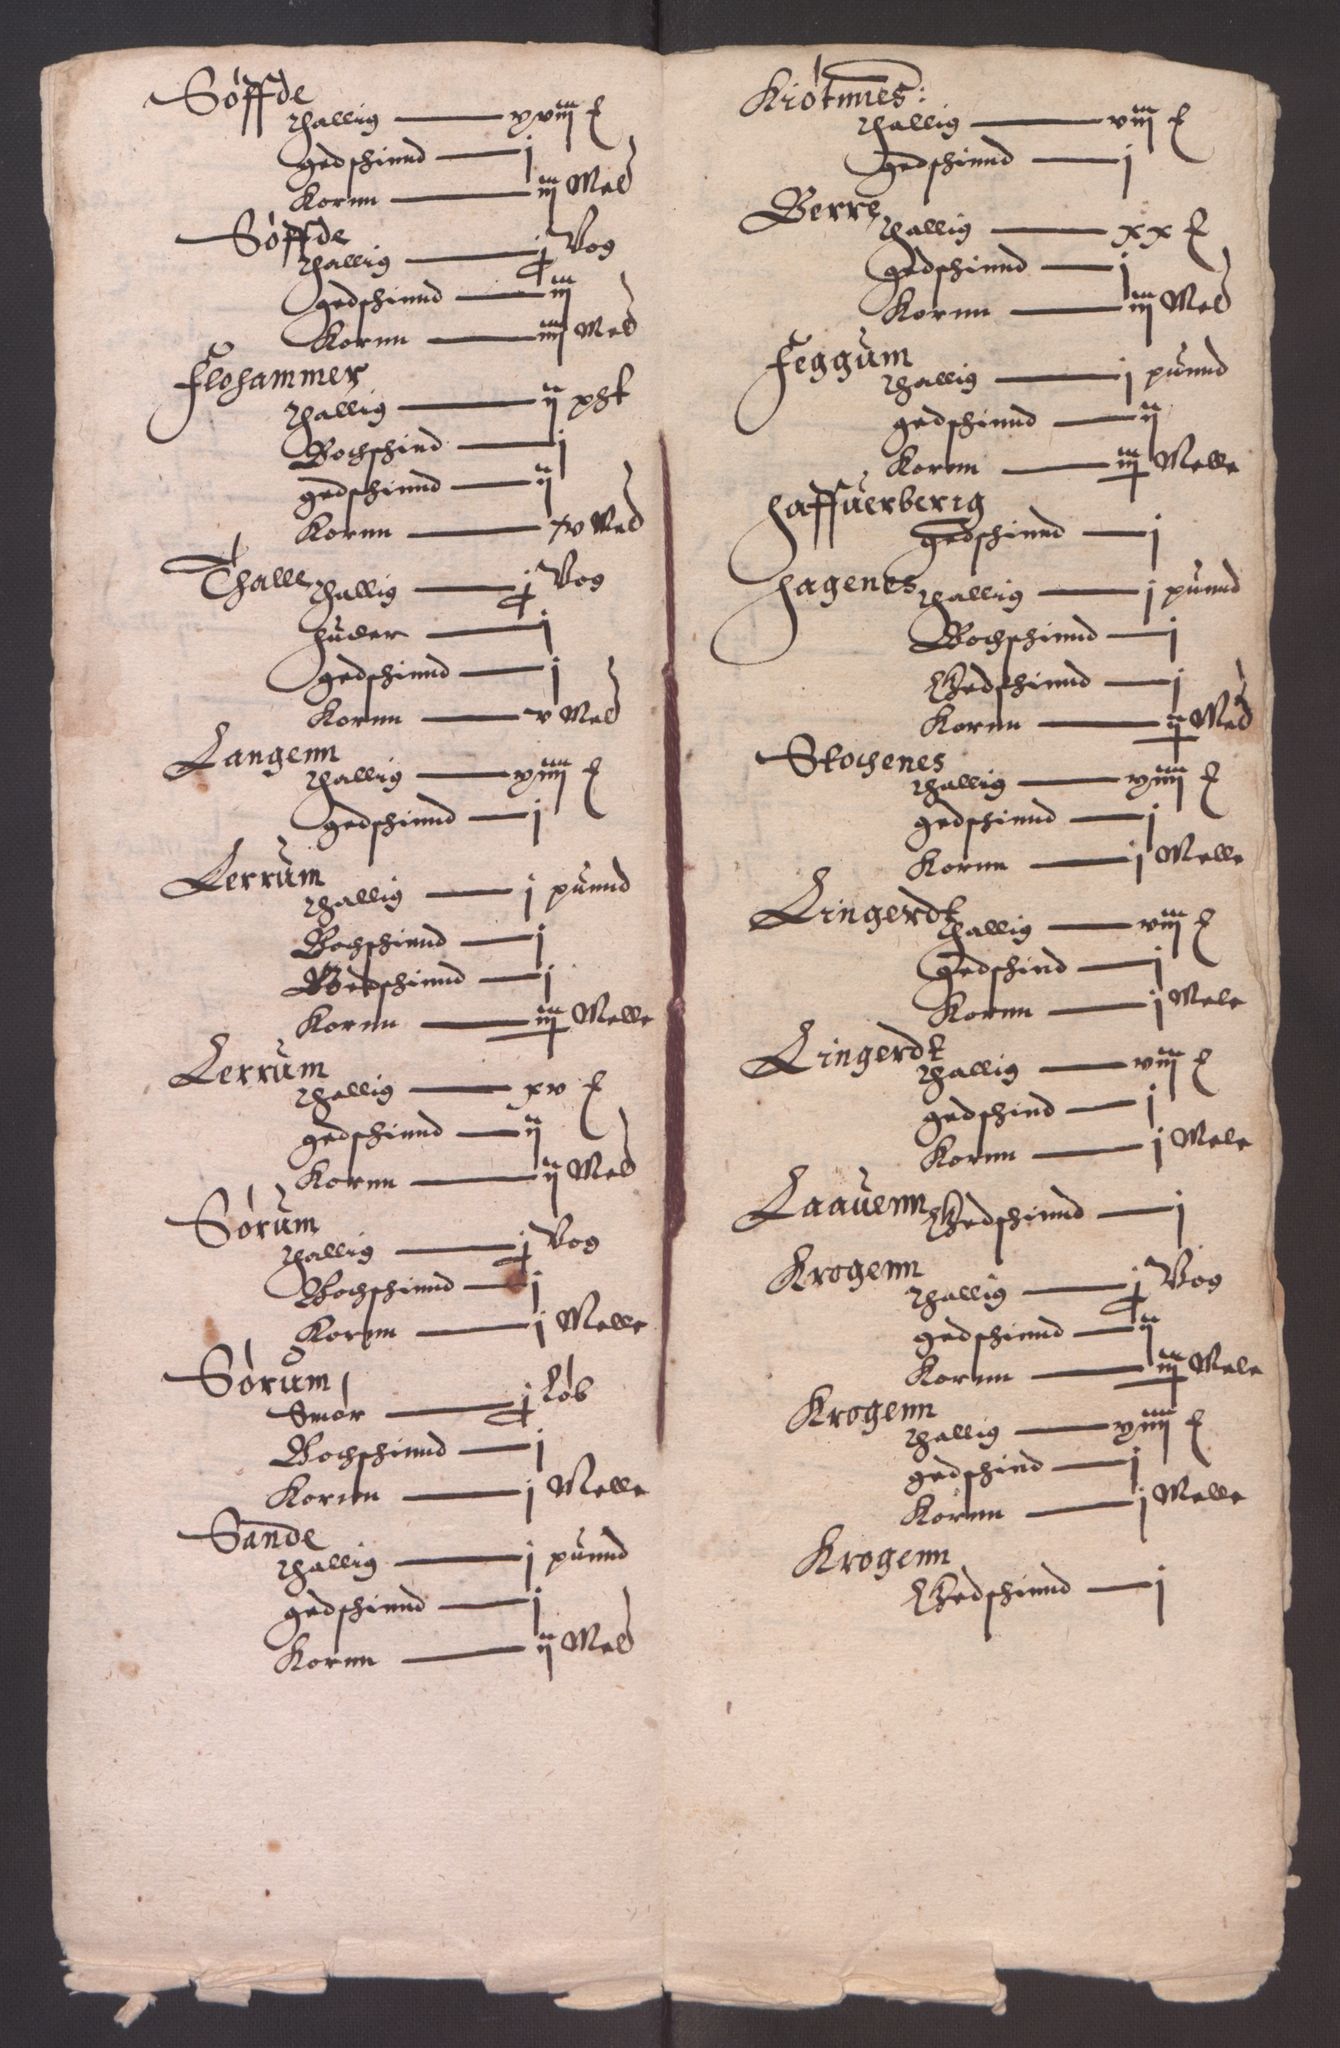 Søffde
Thallig — xviij ℔
gedschinnd — j
Kornn — iij Meel
Søffde
Thallig — j Vog
gedschinnd — iij
Kornn — iiij Meel
Flohammer
Thallig — ij pht
Bochschind — j
gedschinnd — ij
Kornn — xv Meel
Thalle Thallig — j Vog
huder — j
gedschinnd — j
Kornn — v Meel
Langenn
Thallig — xviiij ℔
gedschinnd — j
Lerrum
Thallig — j punnd
Bochschinnd — j
Gedschinnd — j
Kornn — iij Melle
Lerrum
Thallig — xv ℔
gedschinnd — ij
Kornn — ij Meel
Sørum
Thallig — j Vog
Bochschinnd — j
Kornn — j Melle
Sørum
Smør — j løb
Bochschinnd — j
Kornn — j Melle
Sande
Thallig — j punnd
gedschinnd — j
Kornn — ij Meel
Kiøtnnes:
Thallig — viij ℔
gedschinnd — j
Berre Thallig — xx ℔
gedschinnd — j
Kornn — iij Meel
Feggum
Thallig — j punnd
gedschinnd — ij
Kornn — iij Melle
Haffuerberig
gedschinnd — j
Hagenes Thallig — j punnd
Bochschinnd — j
Gedschinnd — j
Kornn — ij Meel
Stochenes
Thallig — xviiij ℔
gedschinnd — j
Kornn — j Melle
Lingerdt
Thallig — viij ℔
gedschind — j
Kornn — j Mele
Lingerdt
Thallig — viij ℔
gedschind — j
Kornn — j Mele
Laauenn Gedschinnd — j
Krogenn
Thallig — j Vog
gedschinnd — ij
Kornn — iij Mele
Krogenn
Thallig — xviiij ℔
gedschind — j
Kornn — j Melle
Krogenn
Gedschinnd — j